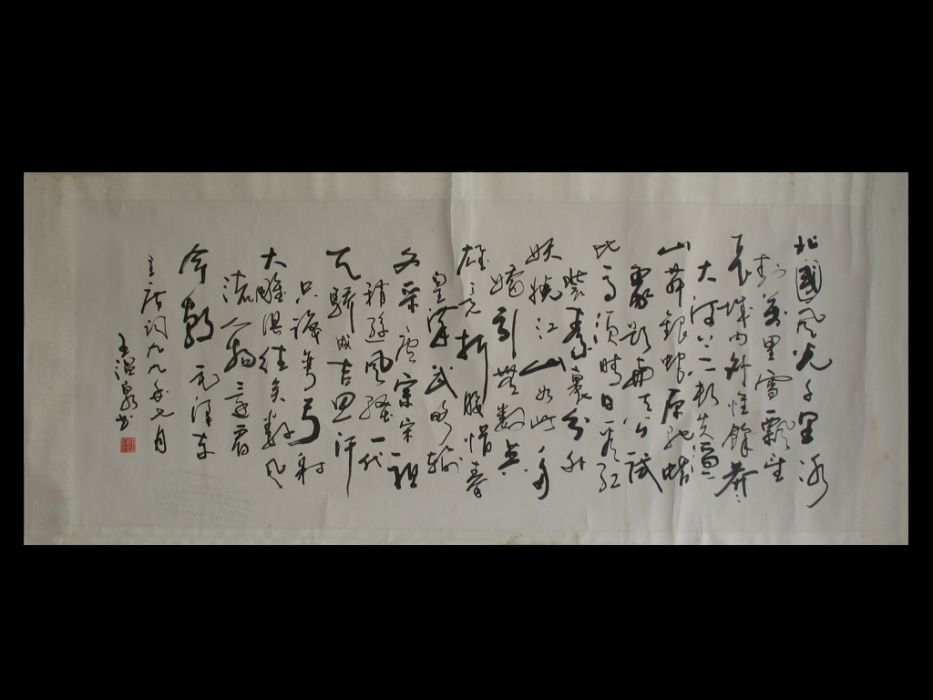 北國風光千里冰
封萬里雪飄望
長城內外惟餘莽莽
大河上下頓失滔滔
山舞銀蛇原馳蠟
象欲與天公試
比高須晴日看紅
裝素裹分外
妖嬈江山如此多
嬌引無數英
雄競折腰惜秦
皇漢武略輸
文采唐宗宋祖
稍遜風騷一代
天驕成吉思汗
只識彎弓射
大雕俱往矣數風
流人物還看
今朝毛澤東
主席詞九九年七月
王溫泉書